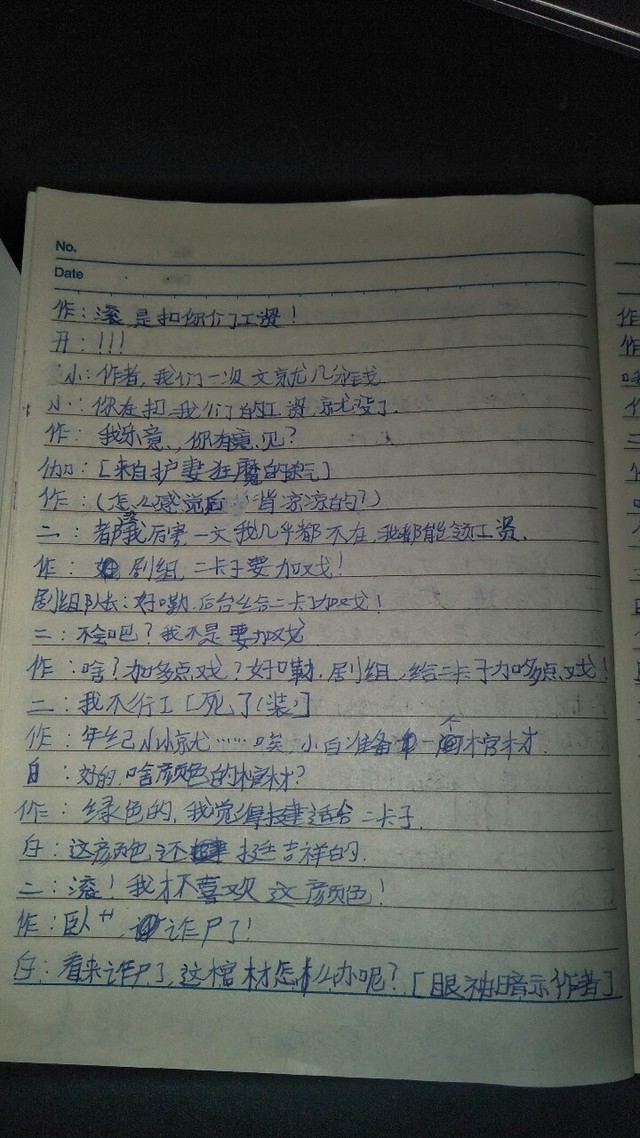 No.
Date
作：滚是扣你们工资！
开：!!!
小：作者，我们一次文就几分钱
小：你在扣我们的工资就没了.
作：我乐意、你有意见？
伽：[来自护妻狂魔的杀气]
作：(怎么感觉后背凉凉的？)
二：都我厉害，一文我几乎都不在，我都能领工资.
作：剧组，二卡子要加戏！
剧组队长：好嘞.后台给二卡子加戏！
二：不会吧？我不是要加戏
作：啥？加多点戏？好嘞.剧组,给二卡子加多点戏！
二：我不行了[死了(装)]
作：年纪小小就……唉，小白准备一个棺材.
白：好的，啥颜色的棺材？
作：绿色的，我觉得挺适合二卡子.
白：这颜色还挺吉祥的.
二：滚！我才不喜欢这颜色！
作：卧艹，诈尸了！
白：看来诈尸了，这棺材怎么办呢？[眼神暗示作者]
作
作
二